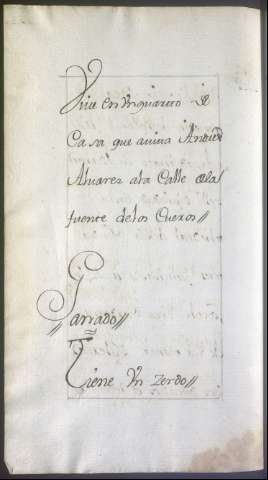 Viue en Vn quarto de
Casa que auita Andres
Aluarez ala Calle dela
fuente delos Cueros//
Ganado//
Tiene Vn Zerdo//